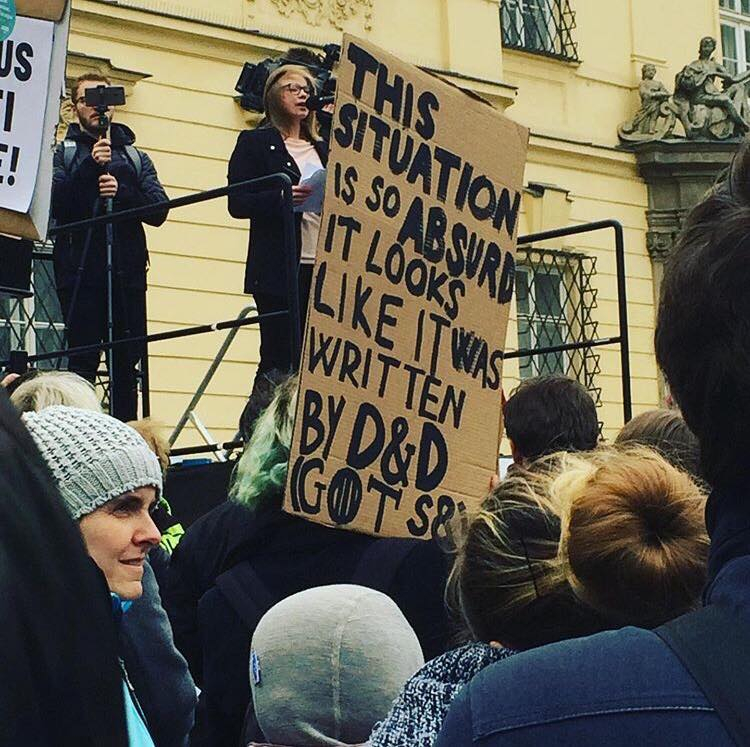 US
I
E!
THIS
SITUATION
IS SO ABSURD
IT LOOKS
LIKE IT WAS
WRITTEN
BY D&D
(GOT S8